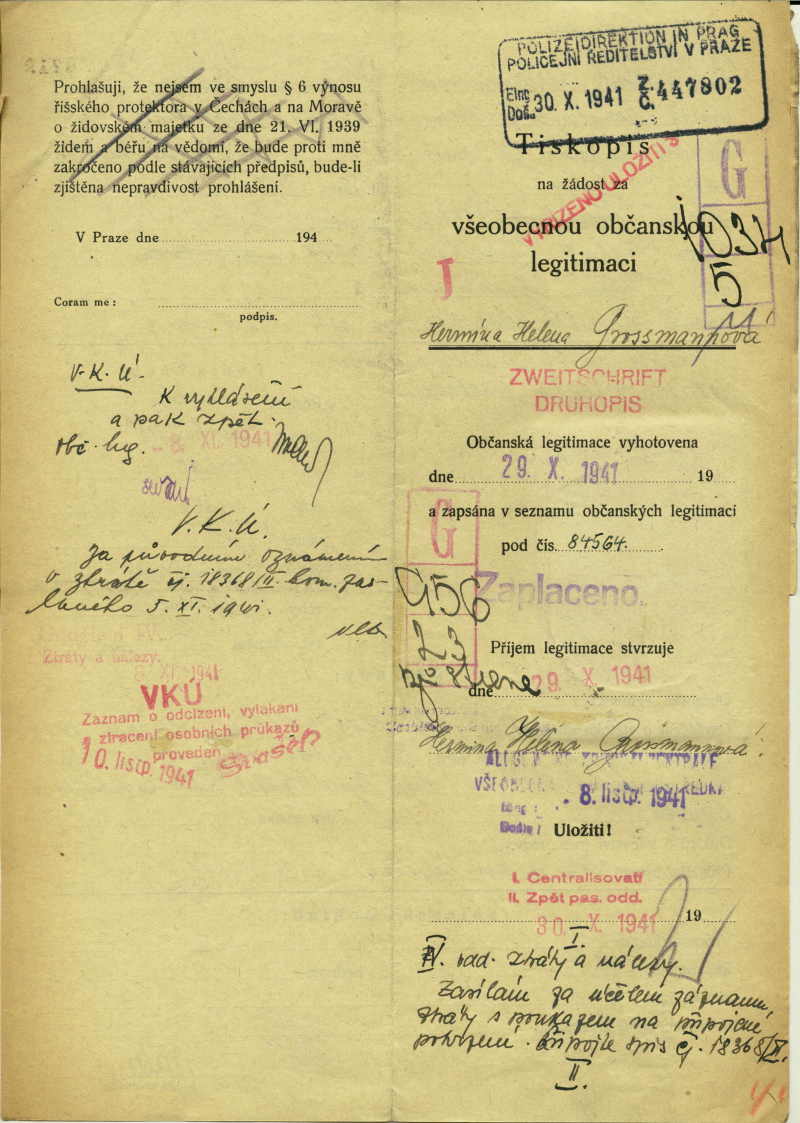 Prohlašuji, že nejsem ve smyslu § 6 výnosu
říšského protektora v Čechách a na Moravě
o židovském majetku ze dne 21. VI. 1939
židem a béřu na vědomí, že bude proti mně
zakročeno podle stávajících předpisů, bude-li
zjištěna nepravdivost prohlášení.
V Praze dne 194
Coram me :
podpis.
V. K. Ú.
K vyhlášení
a pak zpět.
obč. leg.
- 8. XI. 1941
V. K. Ú.
Za původním oznámením
o ztrátě čj. 18368/II kom. zas-
laného 5. XI. 1941.
Ztráty a nálezy.
XI 1941
VKÚ
Záznam o odcizení, vylákání
ztracení osobních průkazů
proveden
10. listp. 1941
POLIZEIDIREKTION IN PRAG
POLICEJNÍ ŘEDITELSTVÍ V PRAZE
Eing.
Doš. 30. X. 1941 Z. Č. 447802
Tiskopis
na žádost za
VYŘÍZENO ULOŽITI
všeobecnou občanskou
legitimaci
G
J
1034
5
Hermína Helena Grossmannová
ZWEITSCHRIFT
DRUHOPIS
Občanská legitimace vyhotovena
dne 29. X. 1941 19
a zapsána v seznamu občanských legitimací
pod čís. 84564.
G
956
23
Zaplaceno.
Příjem legitimace stvrzuje
dne 29 X 1941
Hermina Helena Grossmannová.
- 8. listp. 1941
Uložiti!
I. Centralisovati
II. Zpět pas. odd.
30. X. 1941 19
I.
IV. odd. ztráty a nálezy.
Zasílám za účelem záznamu
ztráty s poukazem na připojené
potvrzení. Připojte spis čj. 18368/II.
II.